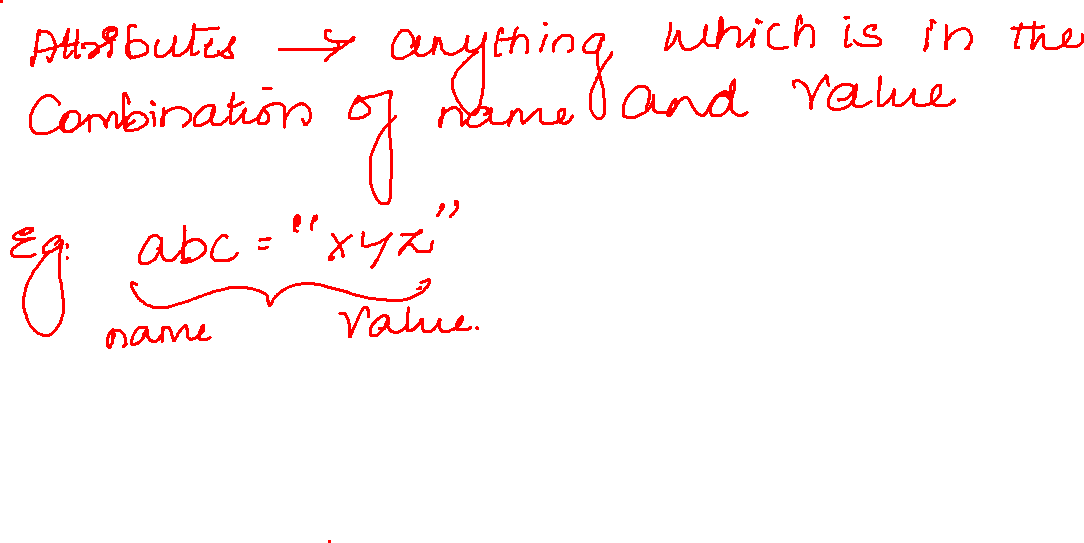 Attributes → anything which is in the
Combination of name and value
Eg: abc = "xyz"
name value.